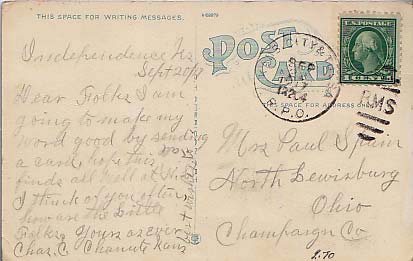 THIS SPACE FOR WRITING MESSAGES.
Independence Ks
Sept 20/17
Dear Folks I am
going to make my
word good by sending
a card, hope this
finds all well at
I think of you often
how are the Little
Folks. Yours as ever
Chas. C. Chanute Kans
Best wishes to
POST CARD
CITY &
SEP
1917
R.P.O.
RMS
U.S. POSTAGE
1 CENT 1
SPACE FOR ADDRESS ONLY
Mrs Paul Spain
North Lewisburg
Ohio
Champaign Co
2.70